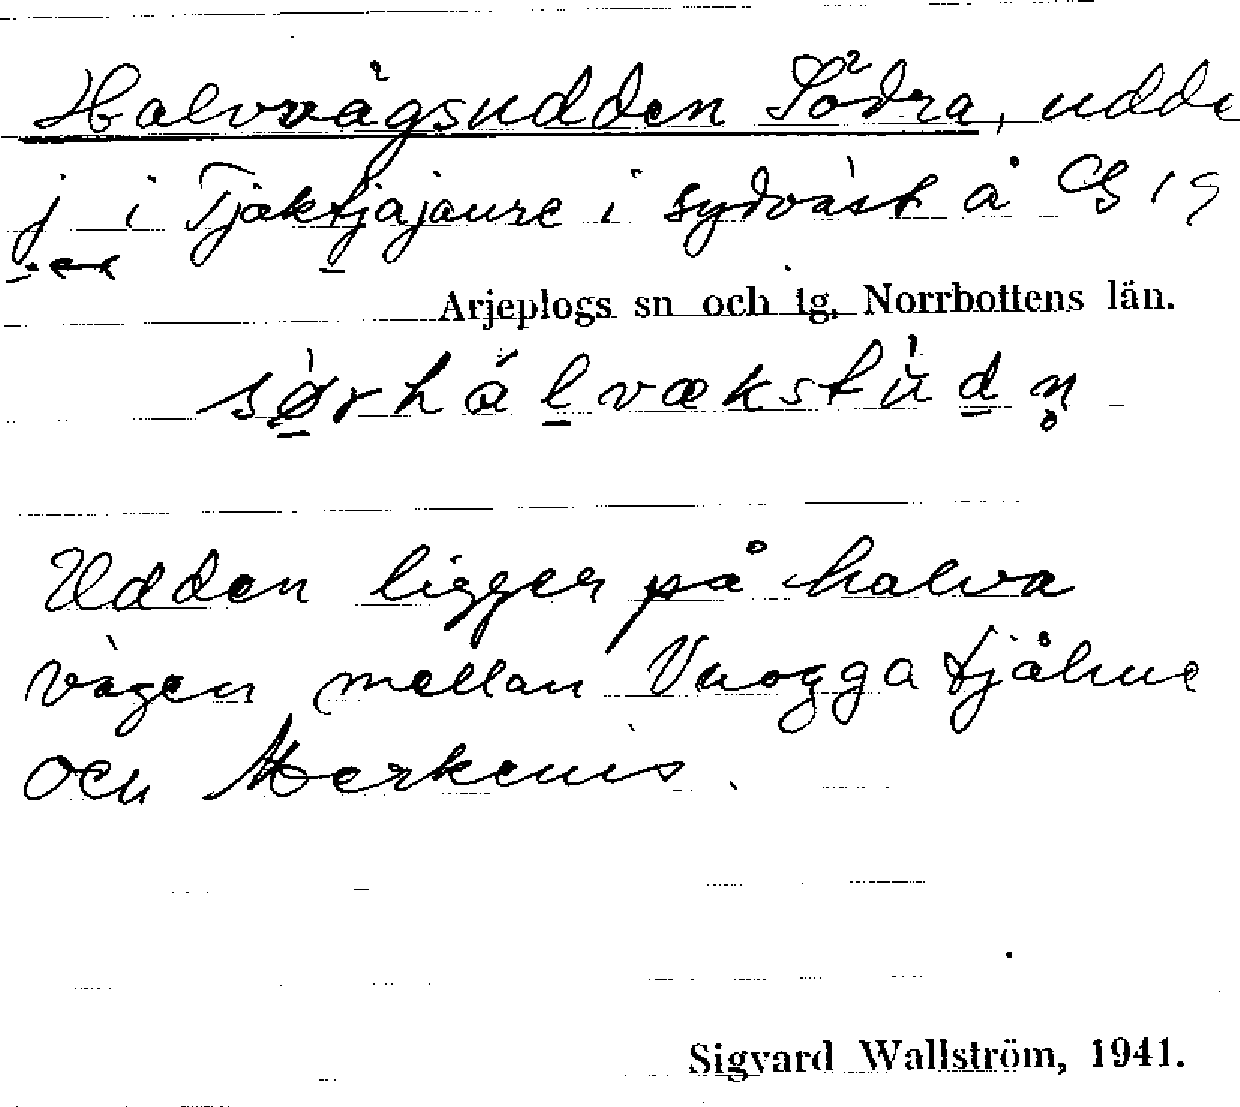 Halvvägsudden Södra, udde
i Tjäktjajaure i sydväst å G 19
Arjeplogs sn och tg. Norrbottens län.
Udden ligger på halva
vägen mellan Vuoggatjålme
och Merkenis.
Sigvard Wallström, 1941.